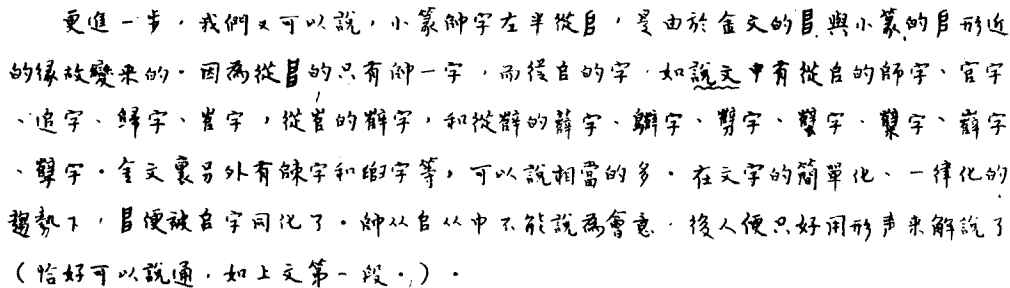 更進一步，我們又可以說，小篆帥字左半從𠂤，是由於金文的𠂤與小篆的𠂤形近
的緣故變來的。因為從𠂤的只有帥一字，而從𠂤的字，如說文中有從𠂤的師字、官字
、追字、歸字、岩字，從岩的辥字，和從辥的薛字、孼字、糱字、蠥字
、孽字。金文裏另外有餗字和字等，可以說相當的多。在文字的簡單化、一律化的
趨勢下，便被𠂤字同化了。帥从𠂤从巾不能說為會意，後人便只好用形声來解說了
（恰好可以說通，如上文第一段。）。